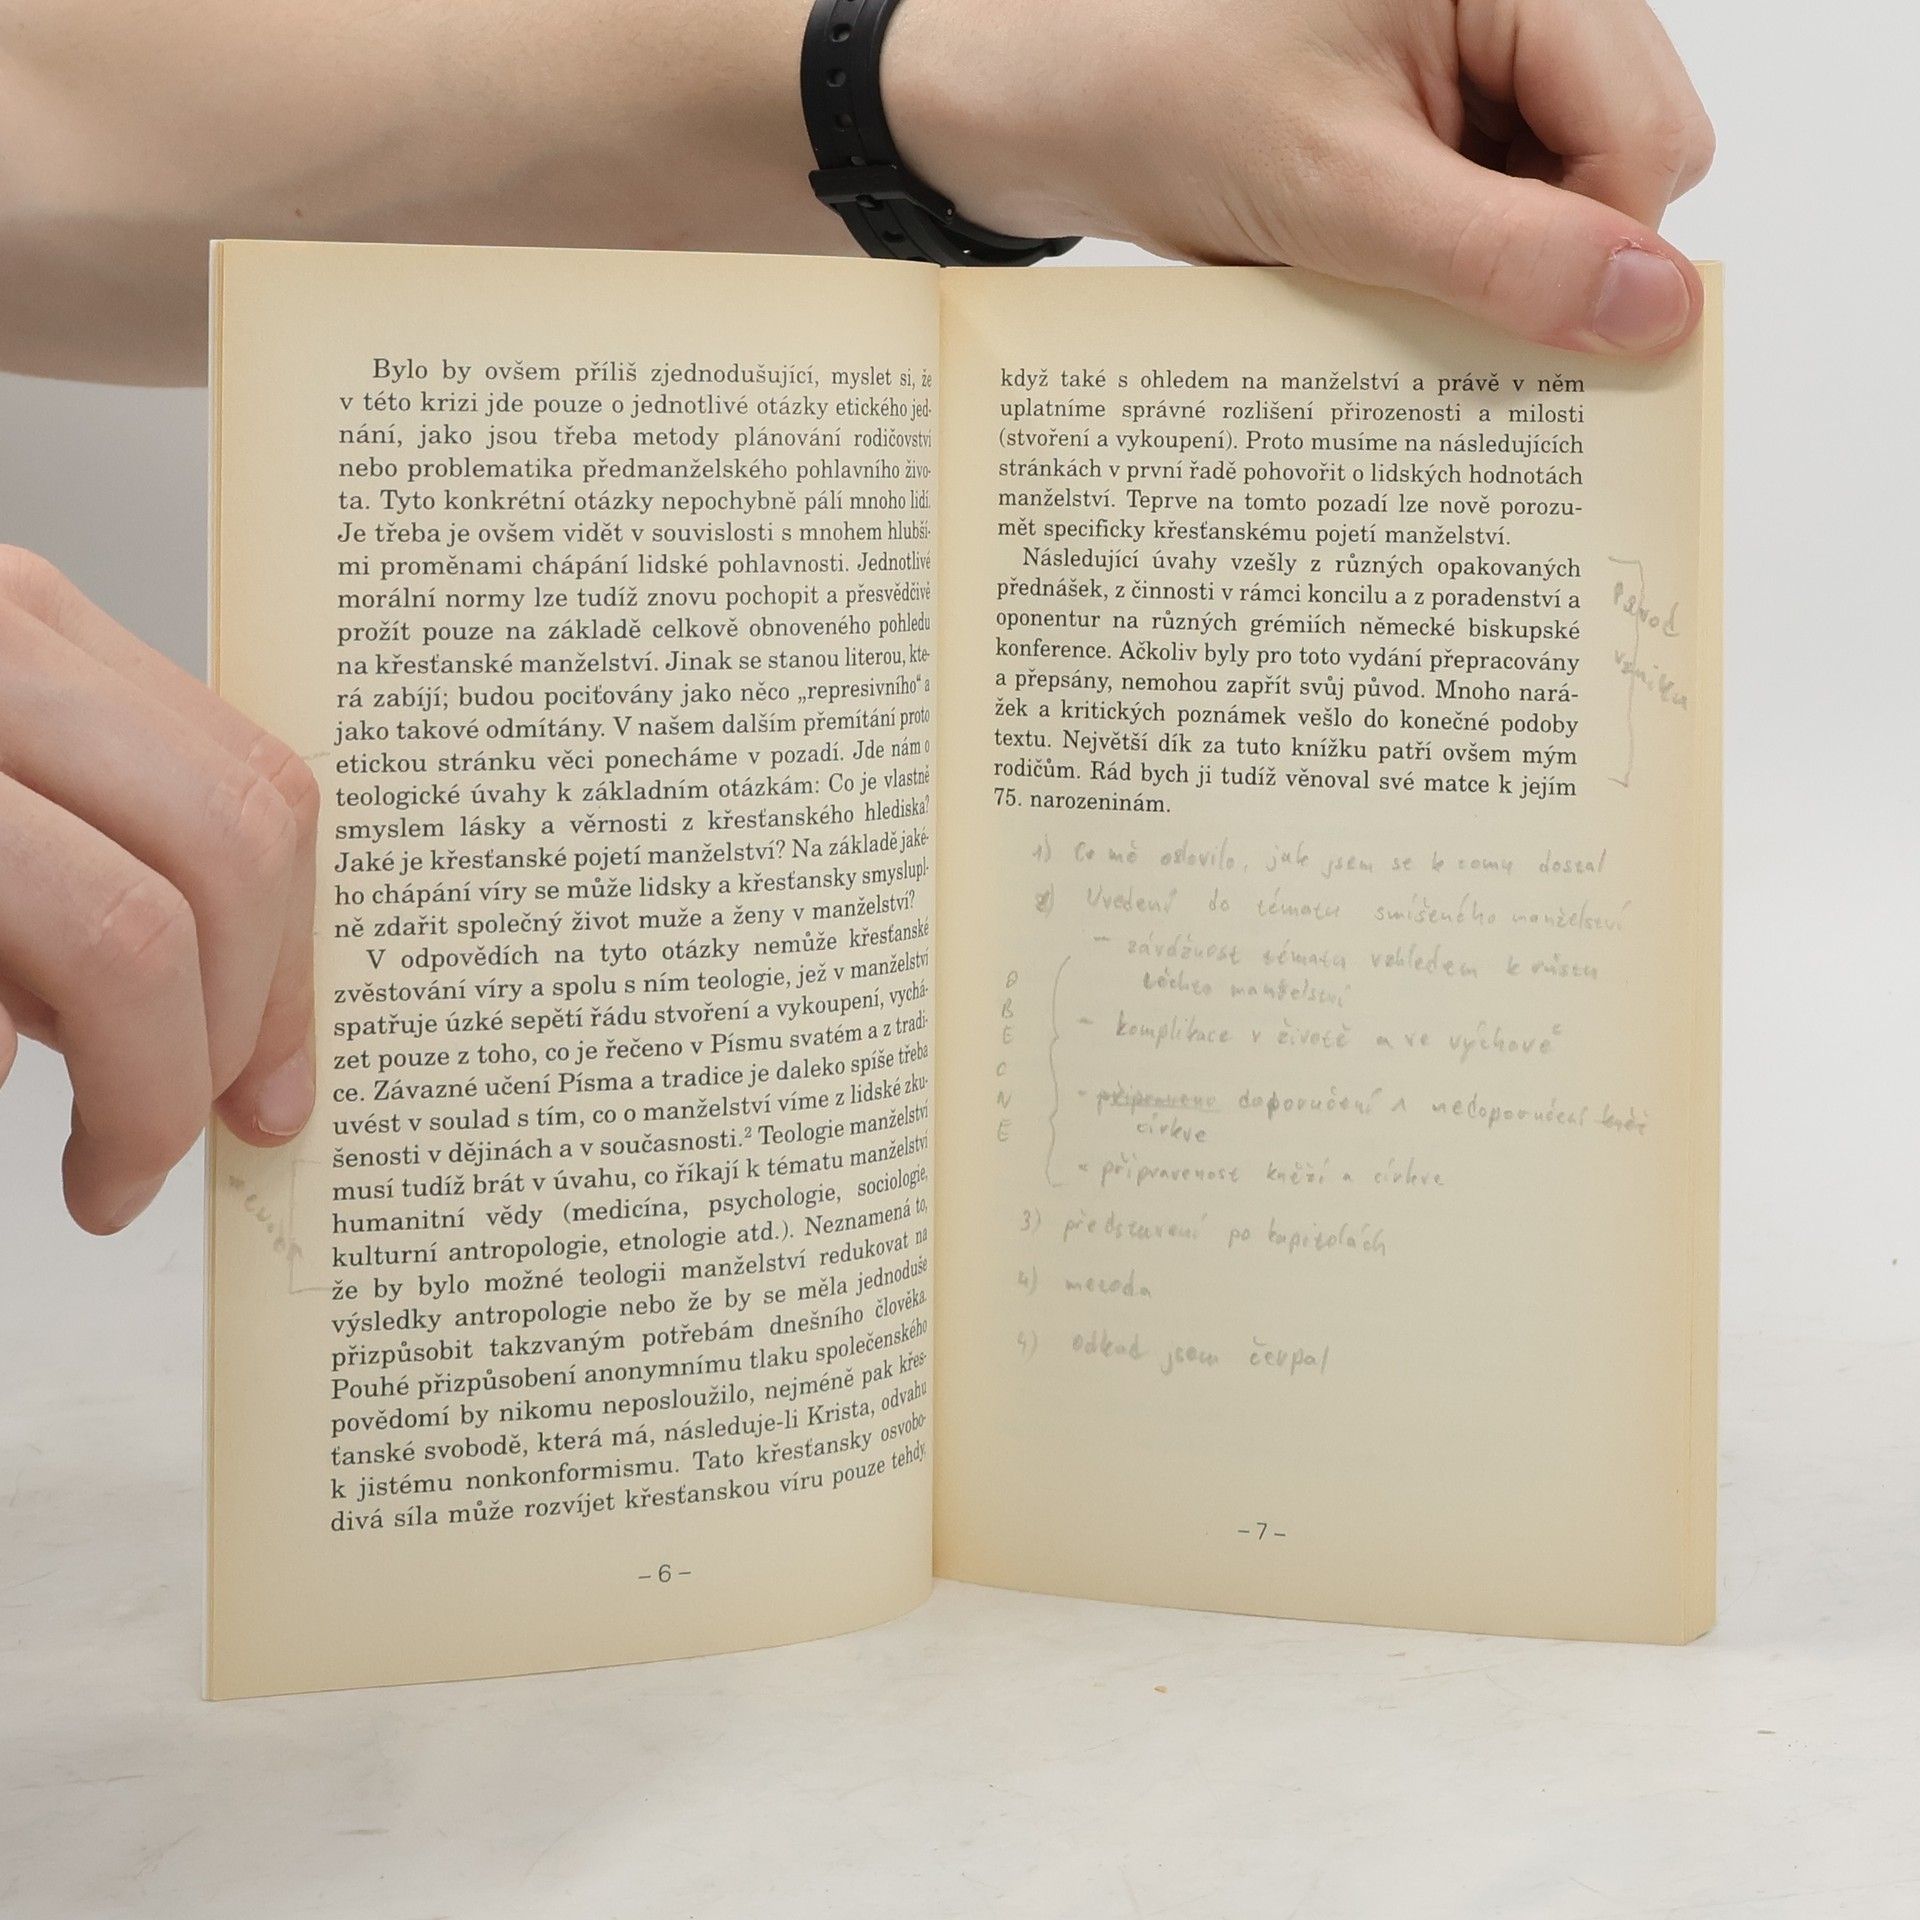 Bylo by ovšem příliš zjednodušující, myslet si, že
v této krizi jde pouze o jednotlivé otázky etického jed-
nání, jako jsou třeba metody plánování rodičovství
nebo problematika předmanželského pohlavního živo-
ta. Tyto konkrétní otázky nepochybně pálí mnoho lidí.
Je třeba je ovšem vidět v souvislosti s mnohem hlubší-
mi proměnami chápání lidské pohlavnosti. Jednotlivé
morální normy lze tudíž znovu pochopit a přesvědčivě
prožít pouze na základě celkově obnoveného pohledu
na křesťanské manželství. Jinak se stanou literou, kte-
rá zabíjí; budou pociťovány jako něco „represivního“ a
jako takové odmítány. V našem dalším přemítání proto
etickou stránku věci ponecháme v pozadí. Jde nám o
teologické úvahy k základním otázkám: Co je vlastně
smyslem lásky a věrnosti z křesťanského hlediska?
Jaké je křesťanské pojetí manželství? Na základě jaké-
ho chápání víry se může lidsky a křesťansky smyslupl-
ně zdařit společný život muže a ženy v manželství?
V odpovědích na tyto otázky nemůže křesťanské
zvěstování víry a spolu s ním teologie, jež v manželství
spatřuje úzké sepětí řádu stvoření a vykoupení, vychá-
zet pouze z toho, co je řečeno v Písmu svatém a z tradi-
ce. Závazné učení Písma a tradice je daleko spíše třeba
uvést v soulad s tím, co o manželství víme z lidské zku-
šenosti v dějinách a v současnosti.² Teologie manželství
musí tudíž brát v úvahu, co říkají k tématu manželství
humanitní vědy (medicína, psychologie, sociologie,
kulturní antropologie, etnologie atd.). Neznamená to,
že by bylo možné teologii manželství redukovat na
výsledky antropologie nebo že by se měla jednoduše
přizpůsobit takzvaným potřebám dnešního člověka.
Pouhé přizpůsobení anonymnímu tlaku společenského
povědomí by nikomu neposloužilo, nejméně pak křes-
ťanské svobodě, která má, následuje-li Krista, odvahu
k jistému nonkonformismu. Tato křesťansky osvobo-
divá síla může rozvíjet křesťanskou víru pouze tehdy,
– 6 –
když také s ohledem na manželství a právě v něm
uplatníme správné rozlišení přirozenosti a milosti
(stvoření a vykoupení). Proto musíme na následujících
stránkách v první řadě pohovořit o lidských hodnotách
manželství. Teprve na tomto pozadí lze nově porozu-
mět specificky křesťanskému pojetí manželství.
Následující úvahy vzešly z různých opakovaných
přednášek, z činnosti v rámci koncilu a z poradenství a
oponentur na různých grémiích německé biskupské
konference. Ačkoliv byly pro toto vydání přepracovány
a přepsány, nemohou zapřít svůj původ. Mnoho nará-
žek a kritických poznámek vešlo do konečné podoby
textu. Největší dík za tuto knížku patří ovšem mým
rodičům. Rád bych ji tudíž věnoval své matce k jejím
75. narozeninám.
původ
vzniku
1) Co mě oslovilo, jak jsem se k tomu dostal
2) Uvedení do tématu smíšeného manželství
– závažnost tématu vzhledem k růstu
těchto manželství
– komplikace v životě a ve výchově
- připraveno doporučení a nedoporučení kněž
církve
- připravenost kněží a církve
OBECNĚ
3) představení po kapitolách
4) metoda
4) odkud jsem čerpal
– 7 –